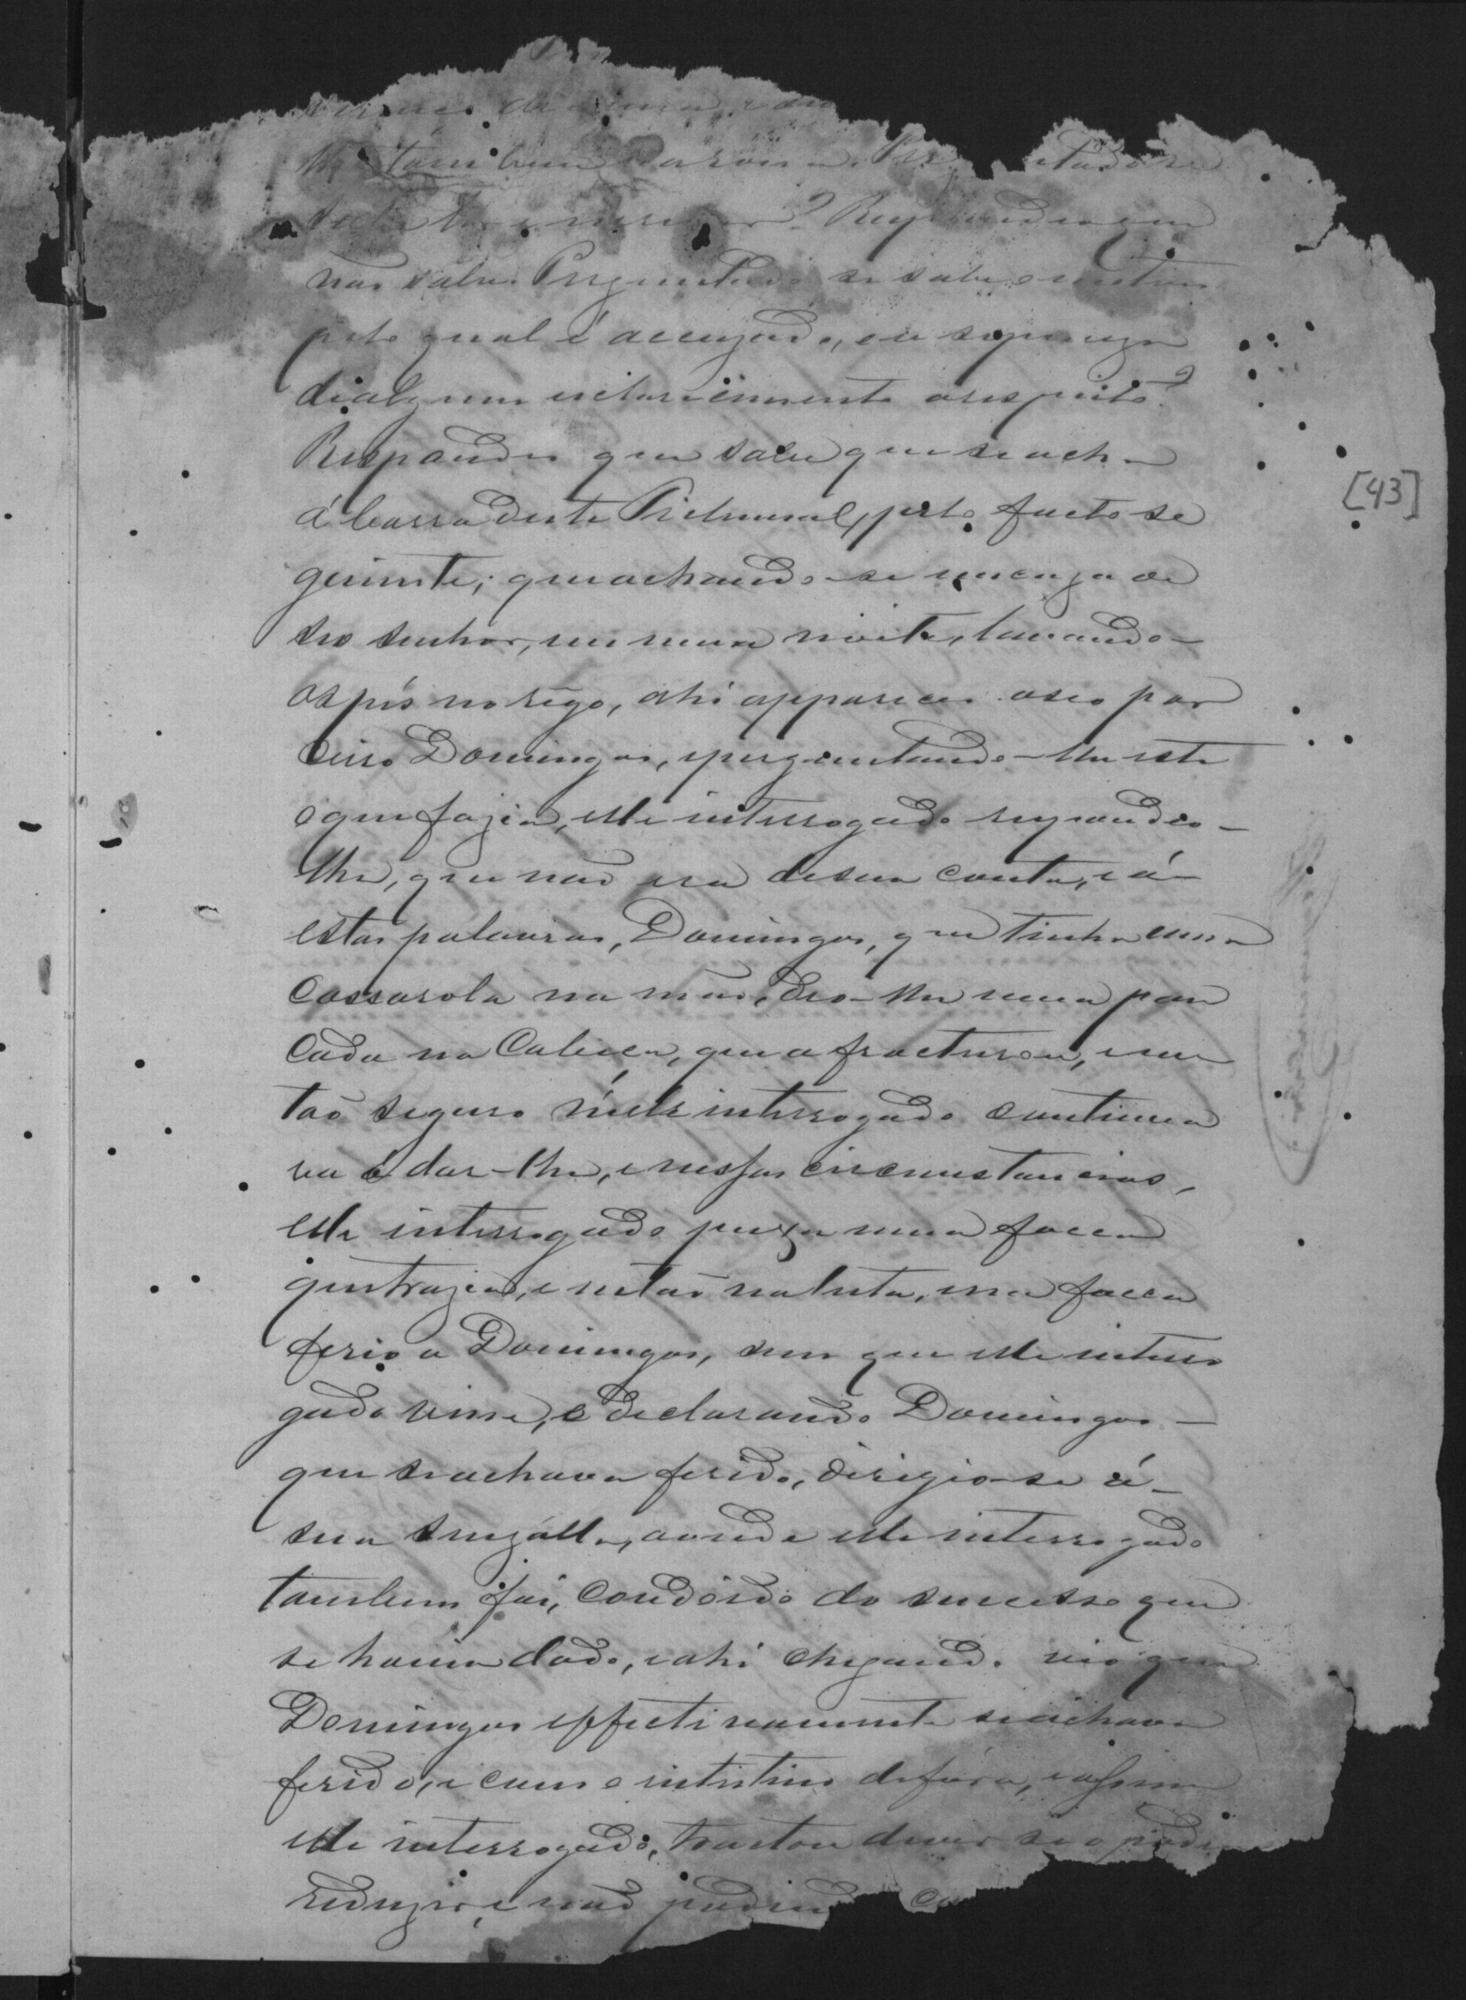 tambem
? Respondeo que
não sabe. Perguntado se sabe o motivo
pelo qual é accuzado, e se preciza
di algum esclarecimento a respeito?
Respondeu que sabe que se acha
á barra deste Tribunal, pelo facto se
guinte; que achando-se em caza de
seo senhor, em uma noite, lavando-
os pés no rego, ahi appareceo o seo par
ceiro Domingos, e perguntando-lhe este
o que fazia, elle interrogado respondeo-
lhe, que não era de sua conta, e á-
estas palavras, Domingos, que tinha uma
cassarola na mão, deo-lhe uma pan
cada na cabeça, que a fracturou, e en
tão seguro n'elle interrogado continua
va á dar-lhe, e nessas circumstancias,
elle interrogado puxa uma facca
que trazia, e então na luta, essa facca
ferio a Domingos, sem que elle interro
gado visse, e declarando Domingos-
que se achava ferido, dirigio-se á-
sua senzalla, aonde elle interrogado
tambem foi, condoido do successo que
se havia dado, e ahi chegando vio que
Domingos effectivamente se achava
ferido, e com o intistino de fóra, e assim
elle interrogado, tractou de ver se o podia
reduzir, e não podendo
[43]